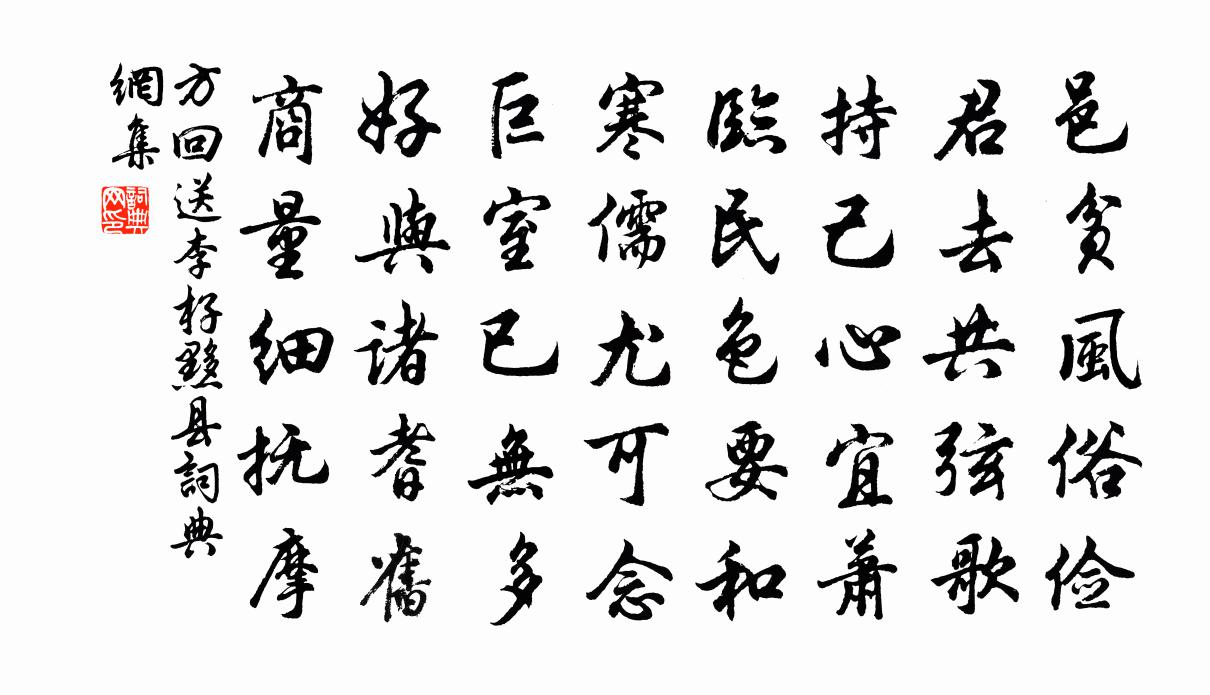 邑貧風俗俭
君去共弦歌
持己心宜萧
臨民色要和
寒儒尤可念
巨室已無多
好與诸耆舊
商量细抚摩
方回送李杍黟县詞典
網集
詞典网印